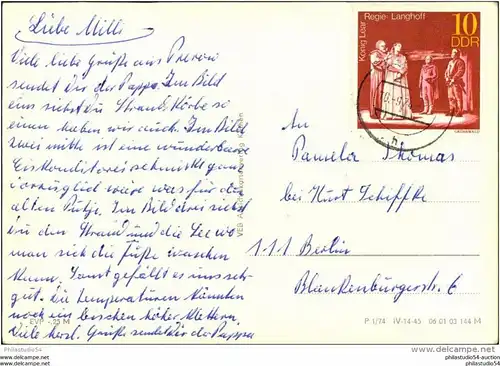 Liebe Milli
Viele liebe Grüße aus Prerow
sendet Dir der Pappa. Im Bild
eins siehst Du Strandkörbe so
einen haben wir auch. Im Bild
zwei mitte ist eine wunderbare
Eiskonditorei schmeckt ganz
vorzüglich wäre was für den
alten Putje. Im Bild drei siehst
Du den Strand und die See wo
man sich die Füße waschen
kann. Sonst gefällt es uns sehr
gut. Die Temperaturen könnten
noch ein bischen höher klettern.
Viele herzl. Grüße sendet Dir der Pappa
EVP -,25 M
VEB
König Lear
Regie: Langhoff
10
DDR
An
Pamela Thomas
bei Kurt Schiffke
111 Berlin
Blankenburgerstr. 6
P 1/74 IV-14-45 06 01 03 144 M
Philastudio54 - Philastudio54
philastudio54-auction
philastudio54
philastudio54-auction
philastudio54